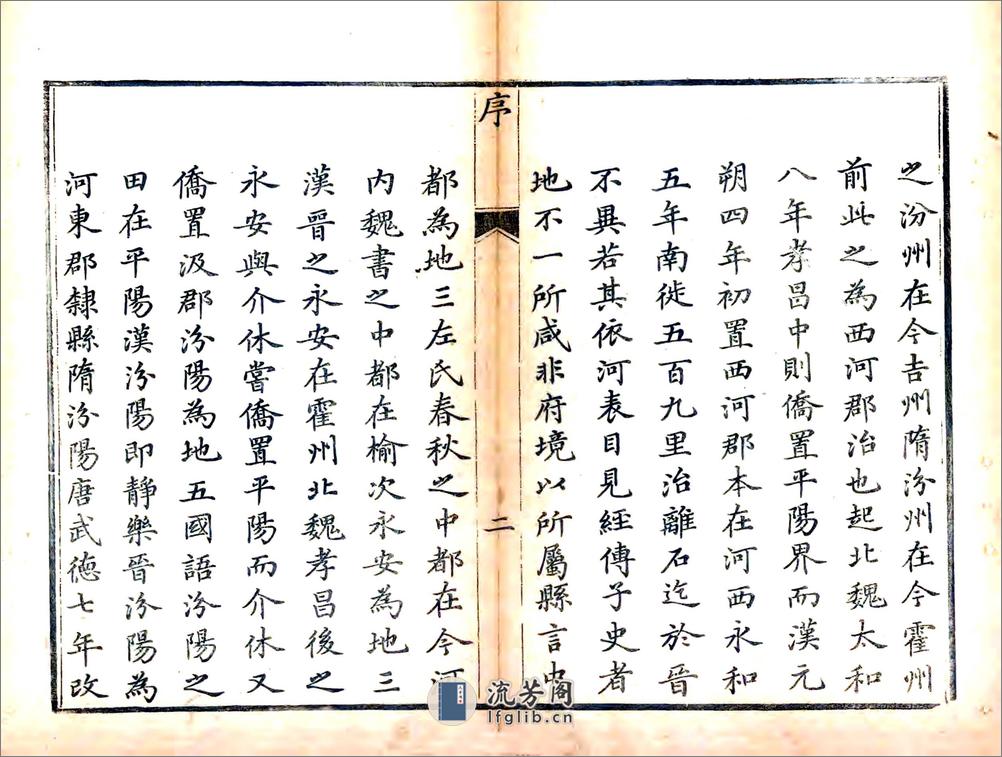 之汾州在今吉州隋汾州在今霍州
前此之為西河郡治也起北魏太和
八年孝昌中則僑置平陽界而漢元
朔四年初置西河郡本在河西永和
五年南徙五百九里治離石迄於晉
不異若其依河表目見經傳子史者
地不一所咸非府境以所屬縣言中
序
二
都為地三左氏春秋之中都在今河
內魏書之中都在榆次永安為地三
漢晉之永安在霍州北魏孝昌後之
永安與介休嘗僑置平陽而介休又
僑置汲郡汾陽為地五國語汾陽之
田在平陽漢汾陽即靜樂晉汾陽為
河東郡隸縣隋汾陽唐武德七年改
流芳阁
lfglib.cn